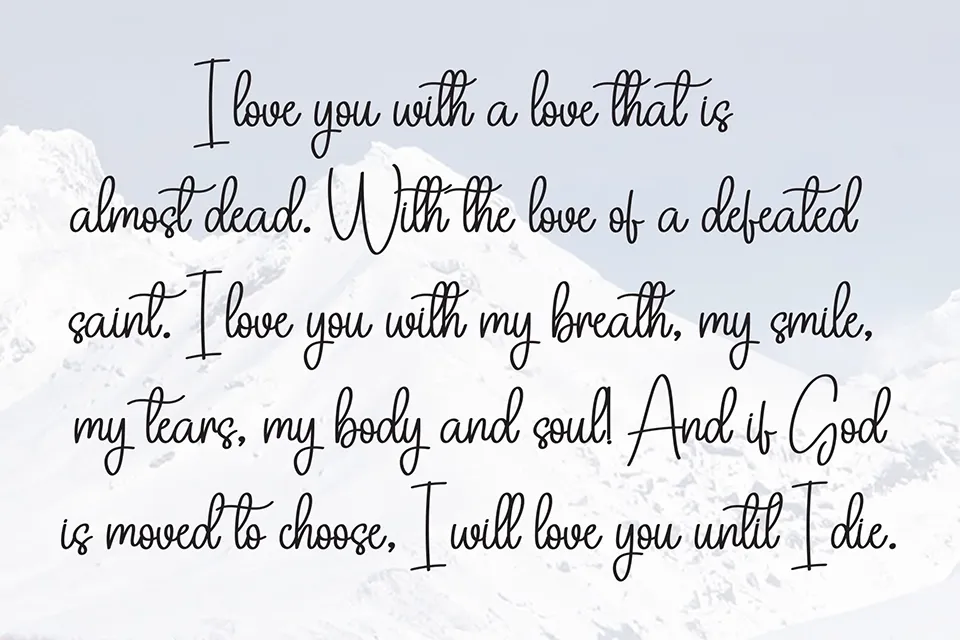 I love you with a love that is
almost dead. With the love of a defeated
saint. I love you with my breath, my smile,
my tears, my body and soul! And if God
is moved to choose, I will love you until I die.